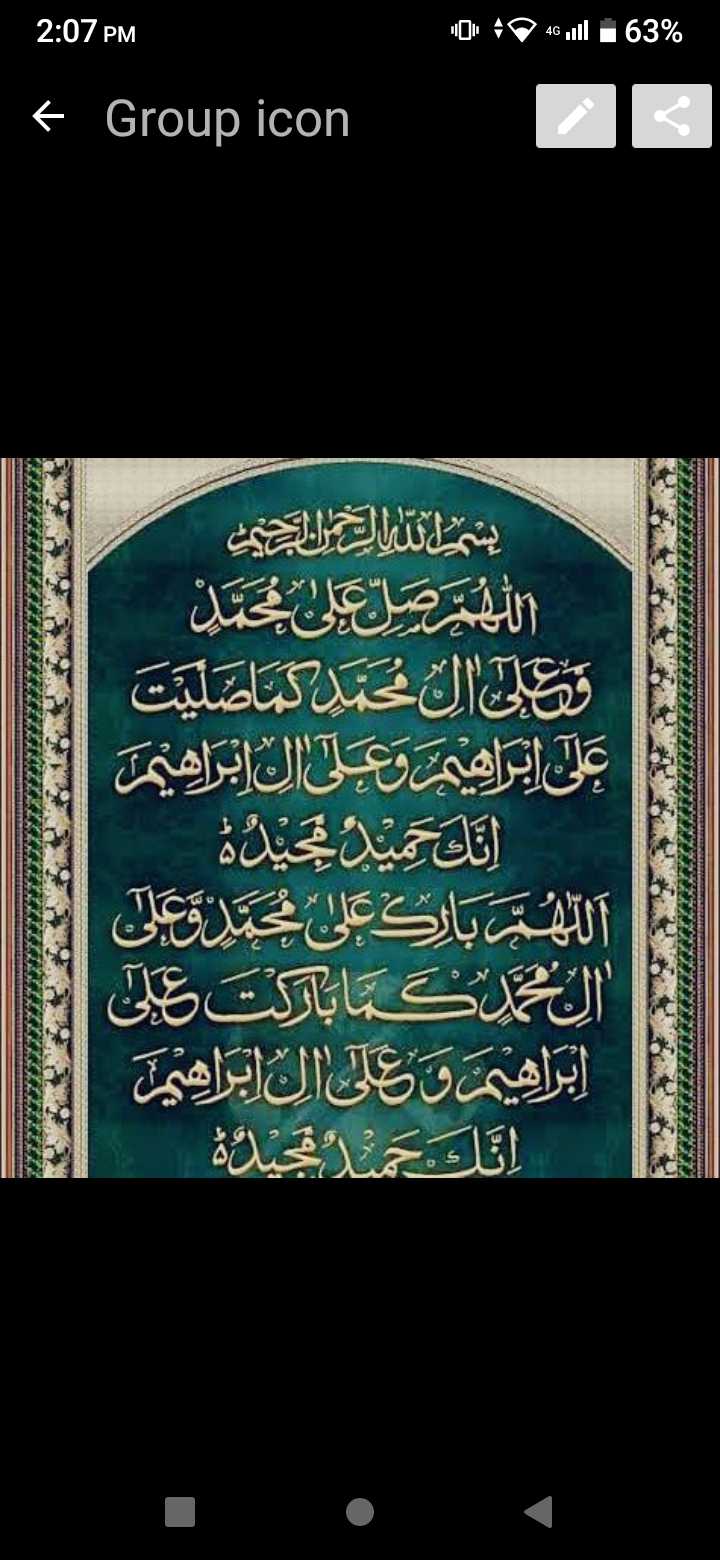 2:07 PM 4G 63%
Group icon
بِسْمِ اللهِ الرَّحْمٰنِ الرَّحِيْمِ
اَللّٰهُمَّ صَلِّ عَلٰى مُحَمَّدٍ
وَّعَلٰٓى اٰلِ مُحَمَّدٍ كَمَا صَلَّيْتَ
عَلٰٓى اِبْرَاهِيْمَ وَعَلٰٓى اٰلِ اِبْرَاهِيْمَ
اِنَّكَ حَمِيْدٌ مَّجِيْدٌ ؕ
اَللّٰهُمَّ بَارِكْ عَلٰى مُحَمَّدٍ وَّعَلٰٓى
اٰلِ مُحَمَّدٍ كَمَا بَارَكْتَ عَلٰٓى
اِبْرَاهِيْمَ وَعَلٰٓى اٰلِ اِبْرَاهِيْمَ
اِنَّكَ حَمِيْدٌ مَّجِيْدٌ ؕ